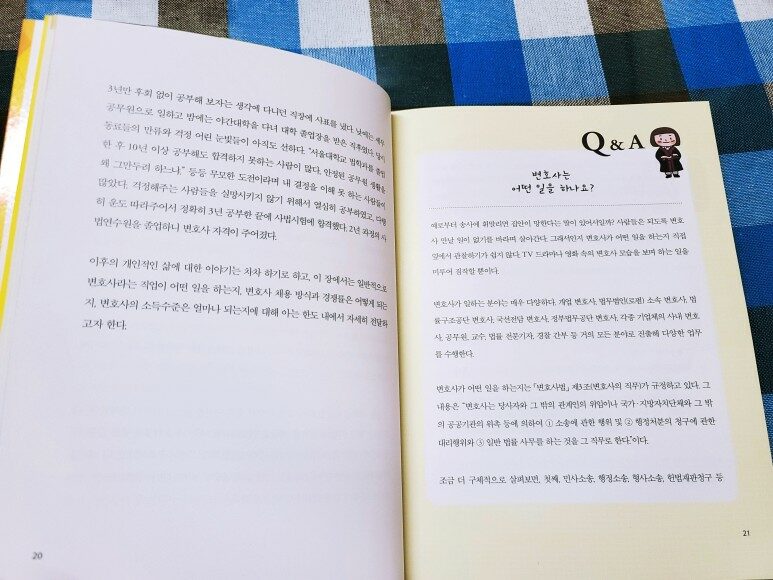 3년만 후회 없이 공부해 보자는 생각에 다니던 직장에 사표를 냈다. 낮에는 세무
공무원으로 일하고 밤에는 야간대학을 다녀 대학 졸업장을 받은 직후였다. 당시
동료들의 만류와 걱정 어린 눈빛들이 아직도 선하다. "서울대학교 법학과를 졸업
한 후 10년 이상 공부해도 합격하지 못하는 사람이 많다. 안정된 공무원 생활을
왜 그만두려 하느냐." 등등 무모한 도전이라며 내 결정을 이해 못 하는 사람들이
많았다. 걱정해주는 사람들을 실망시키지 않기 위해서 열심히 공부하였고, 다행
히 운도 따라주어서 정확히 3년 공부한 끝에 사법시험에 합격했다. 2년 과정의 사
법연수원을 졸업하니 변호사 자격이 주어졌다.
이후의 개인적인 삶에 대한 이야기는 차차 하기로 하고, 이 장에서는 일반적으로
변호사라는 직업이 어떤 일을 하는지, 변호사 채용 방식과 경쟁률은 어떻게 되는
지, 변호사의 소득수준은 얼마나 되는지에 대해 아는 한도 내에서 자세히 전달하
고자 한다.
20
Q & A
변호사는
어떤 일을 하나요?
예로부터 송사에 휘말리면 집안이 망한다는 말이 있어서일까? 사람들은 되도록 변호
사 만날 일이 없기를 바라며 살아간다. 그래서인지 변호사가 어떤 일을 하는지 직접
옆에서 관찰하기가 쉽지 않다. TV 드라마나 영화 속의 변호사 모습을 보며 하는 일을
미루어 짐작할 뿐이다.
변호사가 일하는 분야는 매우 다양하다. 개업 변호사, 법무법인(로펌) 소속 변호사, 법
률구조공단 변호사, 국선전담 변호사, 정부법무공단 변호사, 각종 기업체의 사내 변호
사, 공무원, 교수, 법률 전문기자, 경찰 간부 등 거의 모든 분야로 진출해 다양한 업무
를 수행한다.
변호사가 어떤 일을 하는지는 「변호사법」 제3조(변호사의 직무)가 규정하고 있다. 그
내용은 "변호사는 당사자와 그 밖의 관계인의 위임이나 국가·지방자치단체와 그 밖
의 공공기관의 위촉 등에 의하여 ① 소송에 관한 행위 및 ② 행정처분의 청구에 관한
대리행위와 ③ 일반 법률 사무를 하는 것을 그 직무로 한다."이다.
조금 더 구체적으로 살펴보면, 첫째, 민사소송, 행정소송, 형사소송, 헌법재판청구 등
21